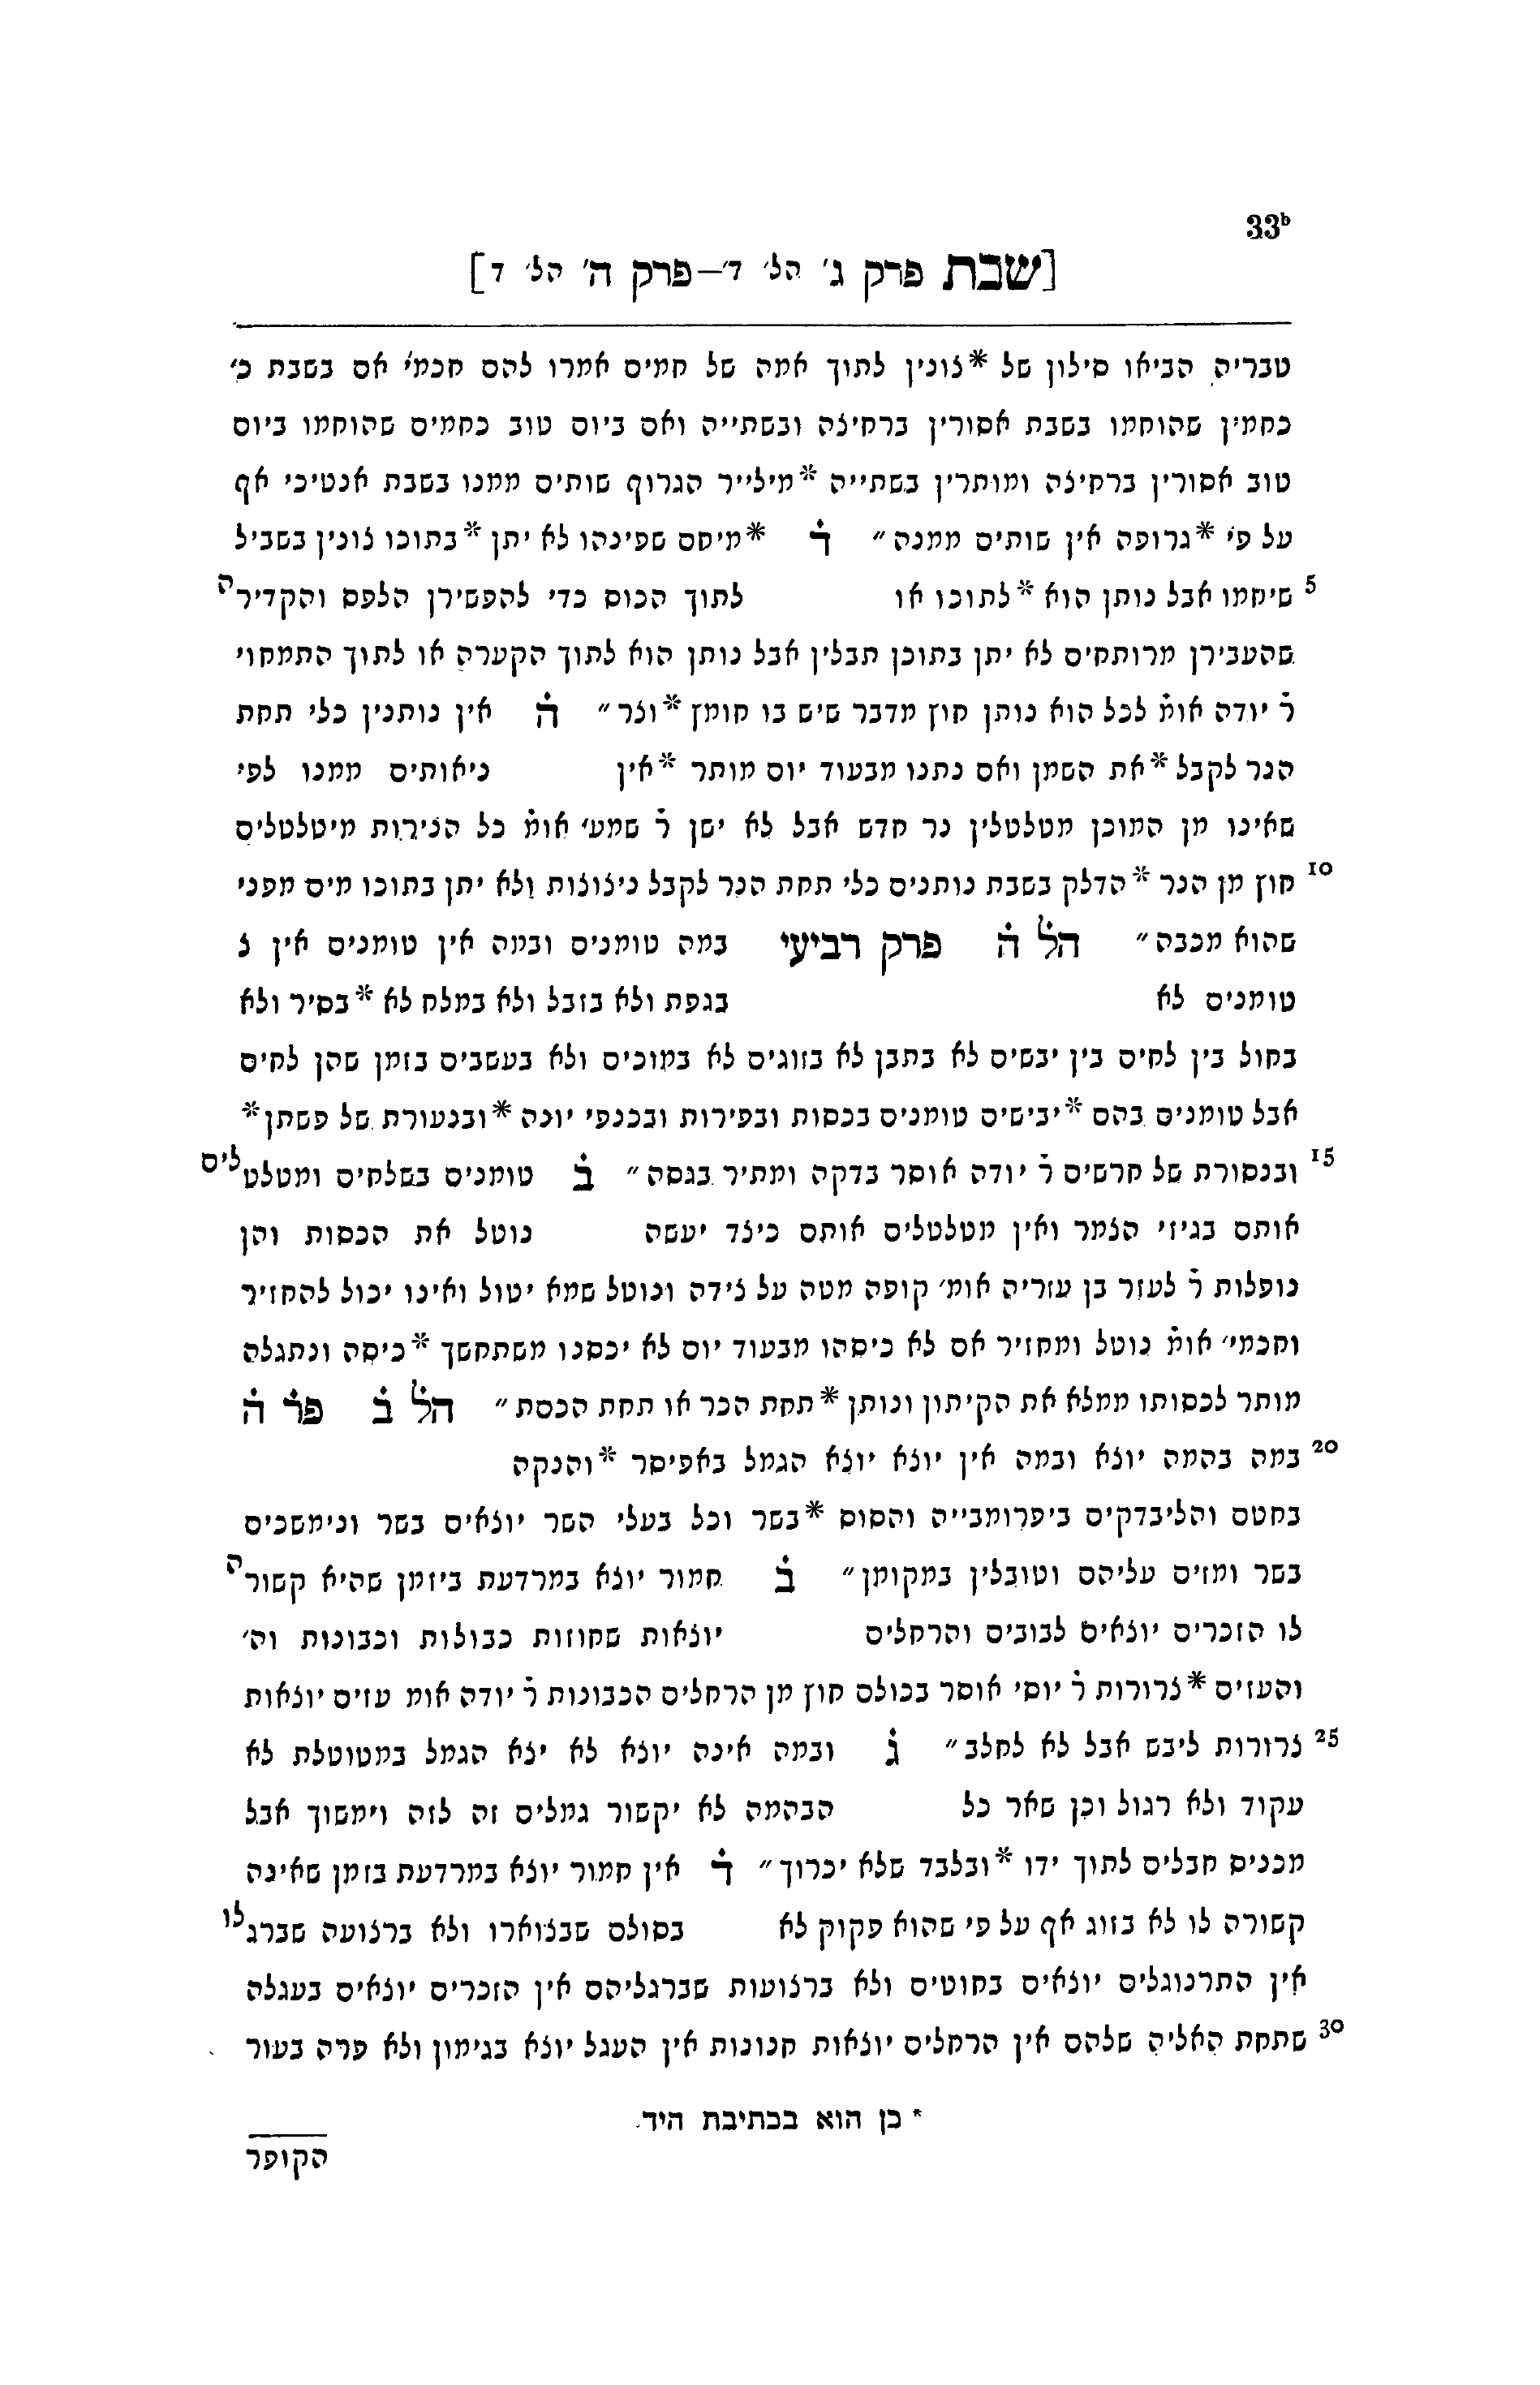 33ᵇ
[שבת פרק ג׳ הל׳ ד׳–פרק ה׳ הל׳ ד]
טבריה הביאו סילון של *צונין לתוך אמה של חמים אמרו להם חכמ׳ אם בשבת כ׳
כחמין שהוחמו בשבת אסורין ברחיצה ובשתייה ואם ביום טוב כחמים שהוחמו ביום
טוב אסורין ברחיצה ומותרין בשתייה *מילייר הגרוף שותים ממנו בשבת אנטיכי אף
על פי *גרופה אין שותים ממנה״ ד *מיחם שפינהו לא יתן *בתוכו צונין בשביל
5 שיחמו אבל נותן הוא *לתוכו או לתוך הכוס כדי להפשירן הלפס והקדירה
שהעבירן מרותחים לא יתן בתוכן תבלין אבל נותן הוא לתוך הקערה או לתוך התמחוי
ר׳ יודה אומ׳ לכל הוא נותן חוץ מדבר שיש בו חומץ *וצר״ ה אין נותנין כלי תחת
הנר לקבל *את השמן ואם נתנו מבעוד יום מותר *אין ניאותים ממנו לפי
שאינו מן המוכן מטלטלין נר חדש אבל לא ישן ר׳ שמע׳ אומ׳ כל הנירות מיטלטלים
10 חוץ מן הנר *הדלק בשבת נותנים כלי תחת הנר לקבל ניצוצות ולא יתן בתוכו מים מפני
שהוא מכבה״ הל ה פרק רביעי במה טומנים ובמה אין טומנים אין צ
טומנים לא בגפת ולא בזבל ולא במלח לא *בסיר ולא
בחול בין לחים בין יבשים לא בתבן לא בזוגים לא במוכים ולא בעשבים בזמן שהן לחים
אבל טומנים בהם *יבישים טומנים בכסות ובפירות ובכנפי יונה *ובנעורת של פשתן*
15 ובנסורת של חרשים ר׳ יודה אוסר בדקה ומתיר בגסה״ ב טומנים בשלחים ומטלטלים
אותם בגיזי הצמר ואין מטלטלים אותם כיצד יעשה נוטל את הכסות והן
נופלות ר׳ לעזר בן עזריה אומ׳ קופה מטה על צידה ונוטל שמא יטול ואינו יכול להחזיר
וחכמי׳ אומ׳ נוטל ומחזיר אם לא כיסהו מבעוד יום לא יכסנו משתחשך *כיסה ונתגלה
מותר לכסותו ממלא את הקיתון ונותן *תחת הכר או תחת הכסת״ הל ב פר׳ ה
20 במה בהמה יוצא ובמה אין יוצא יוצא הגמל באפיסר *והנקה
בחטם והליבדקים ביפרומבייה והסוס *בשר וכל בעלי השר יוצאים בשר ונימשכים
בשר ומזים עליהם וטובלין במקומן״ ב חמור יוצא במרדעת ביזמן שהיא קשורה
לו הזכרים יוצאים לבובים והרחלים יוצאות שחוזות כבולות וכבונות וה׳
והעזים *צרורות ר׳ יוסי אוסר בכולם חוץ מן הרחלים הכבונות ר׳ יודה אומ עזים יוצאות
25 צרורות ליבש אבל לא לחלב״ ג ובמה אינה יוצא לא יצא הגמל במטוטלת לא
עקוד ולא רגול וכן שאר כל הבהמה לא יקשור גמלים זה לזה וימשוך אבל
מכניס חבלים לתוך ידו *ובלבד שלא יכרוך״ ד אין חמור יוצא במרדעת בזמן שאינה
קשורה לו לא בזוג אף על פי שהוא פקוק לא בסולם שבצוארו ולא ברצועה שברגלו
אין התרנוגלים יוצאים בחוטים ולא ברצועות שברגליהם אין הזכרים יוצאים בעגלה
30 שתחת האליה שלהם אין הרחלים יוצאות חנונות אין העגל יוצא בגימון ולא פרה בעור
* כן הוא בכתיבת היד.
הקופר